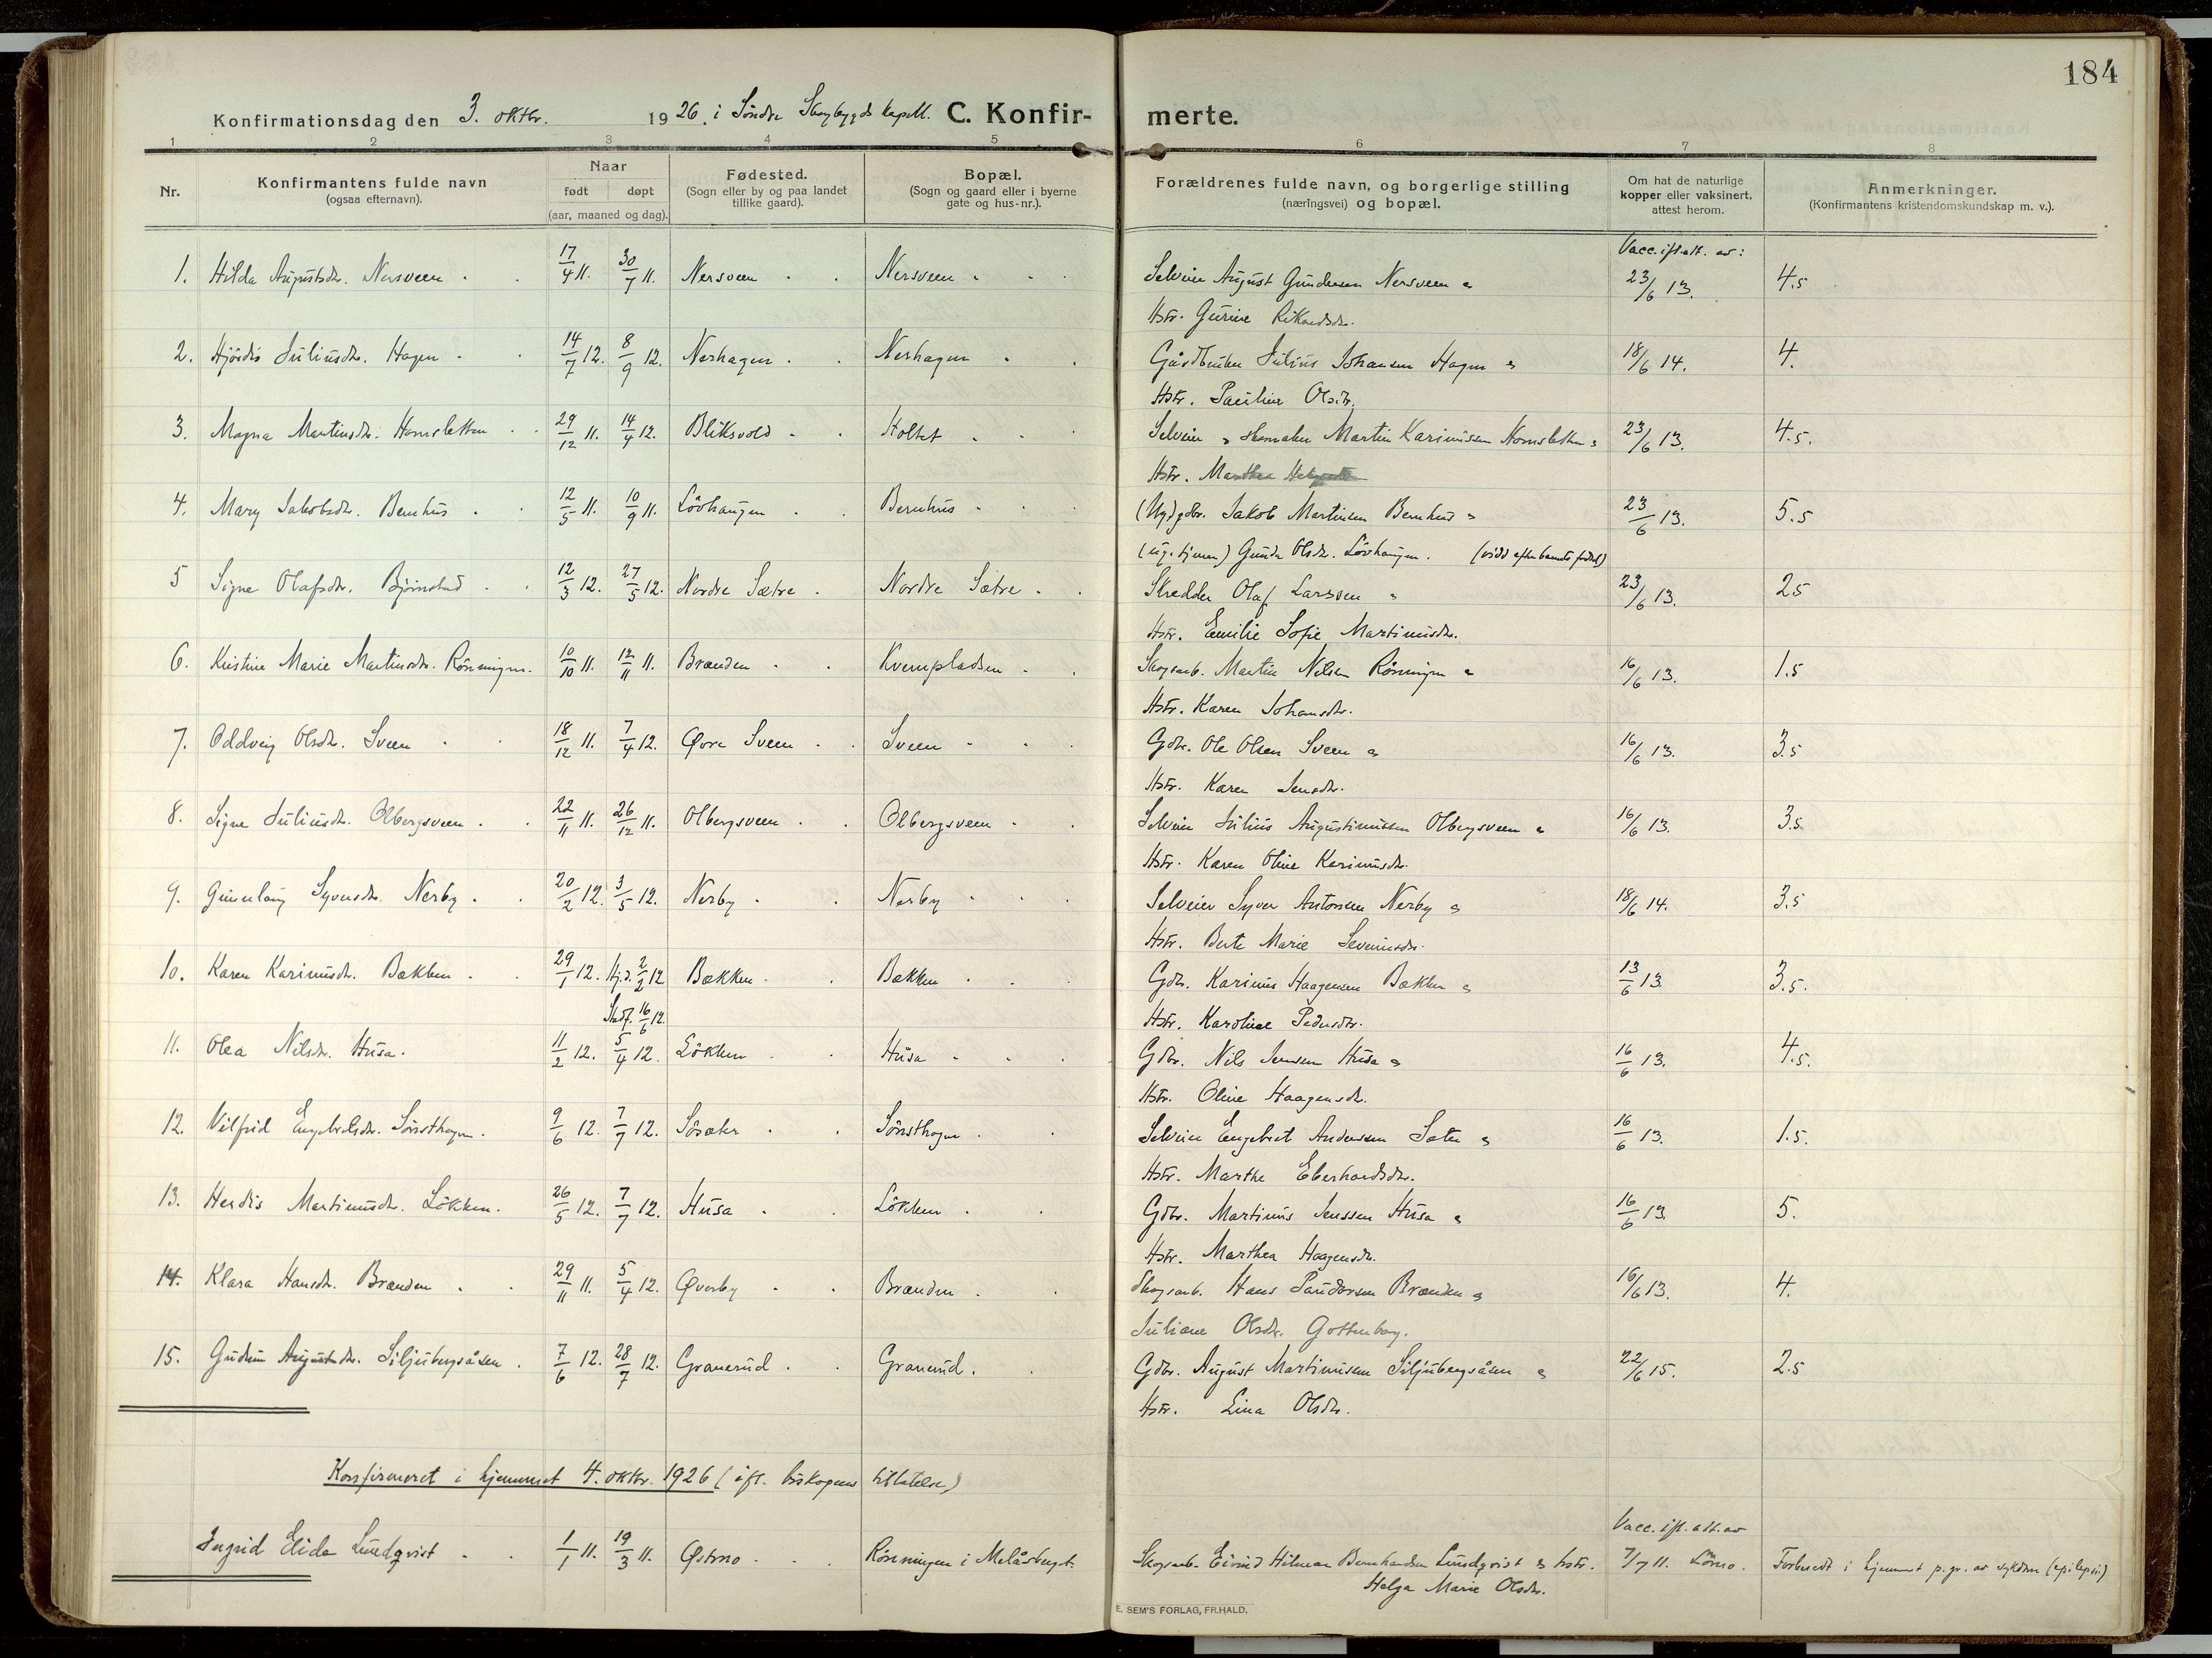 184
Konfirmationsdag den 3. oktbr. 1926. i Söndre Skogbygds kapell. C. Konfir- merte.
1 2 3 4 5 6 7 8
Nr. Konfirmantens fulde navn (ogsaa efternavn). Naar født døpt (aar, maaned og dag). Fødested. (Sogn eller by og paa landet tillike gaard). Bopæl. (Sogn og gaard eller i byerne gate og hus-nr.). Forældrenes fulde navn, og borgerlige stilling (næringsvei) og bopæl. Om hat de naturlige kopper eller vaksinert, attest herom. Anmerkninger. (Konfirmantens kristendomskundskap m. v.).
Vacc. ifl. att. av:
1. Hilda Augustsdtr. Nersveen 17/4 11. 30/7 11. Nersveen Nersveen Selveier August Gundersen Nersveen o 23/6 13. 4.5
Hstr. Gurine Rikardsdtr.
2. Hjördis Juliusdtr. Hagen 14/7 12. 8/9 12. Nerhagen Nerhagen Gårdbruker Julius Johansen Hagen o 18/6 14. 4.
Hstr. Pauline Olsdtr.
3. Magna Martinsdtr. Homsletten 29/12 11. 14/4 12. Bliksvold Holtet Selveier o Martin Karinusen Homsletten o 23/6 13. 4.5.
Hstr. Marthea
4. Mary Jakobsdtr. Bernhus 12/5 11. 10/9 11. Lövhaugen Bernhus (Ug) gdbr. Jakob Martinsen Bernhus o 23/6 13. 5.5
(ug. tjener) Gunda Olsdtr. Lövhaugen. (viet efter barnets födsel)
5 Signe Olafsdtr. Björnstad 12/3 12. 27/5 12. Nordre Sætre Nordre Sætre Skredder Olaf Larssen o 23/6 13. 2.5
Hstr. Emilie Sofie Martinusdtr.
6. Kristine Marie Martinsdtr. Rönningen. 10/10 11. 12/11 11. Brænden Kvernpladsen Skogsarb. Martin Nilsen Rönningen o 16/6 13. 1.5
Hstr. Karen Johansdtr.
7. Oddveig Olsdtr. Sveen 18/12 11. 7/4 12. Øvre Sveen Sveen Gdbr. Ole Olsen Sveen o 16/6 13. 3.5
Hstr. Karen Jensdtr.
8. Signe Juliusdtr. Olbergsveen 22/11 11. 26/12 11. Olbergsveen Olbergsveen Selveier Julius Augustinussen Olbergsveen o 16/6 13. 3.5
Hstr. Karen Oline Karinusdtr.
9. Gunnlaug Syversdtr. Nerby 20/2 12. 3/5 12. Nerby Nerby Selveier Syver Antonsen Nerby o 18/6 14. 3.5
Hstr. Berte Marie Severinsdtr.
10. Karen Karinusdtr. Bækken 29/1 12. Hj.d. 2/2 12 Bækken Bækken Gdbr. Karinus Haagensen Bækken o 13/6 13. 3.5.
Stadf. 16/6 12. Hstr. Karoline Pedersdtr.
11. Olea Nilsdtr. Husa. 11/2 12. 5/4 12. Lökken Husa Gdbr. Nils Jensen Husa o 16/6 13. 4.5.
Hstr. Oline Haagensdtr.
12. Vilfrid Engebretsdtr. Sörsthagen. 9/6 12. 7/7 12. Söræter Sörsthagen Selveier Engebret Andersen Sæter o 16/6 13. 1.5.
Hstr. Marthe Eberhardsdtr.
13. Herdis Martinusdtr. Lökken. 26/5 12. 7/7 12. Husa Lökken Gdbr. Martinus Jenssen Husa o 16/6 13. 5.
Hstr. Marthea Haagensdtr.
14. Klara Hansdtr. Brænden 29/11 11. 5/4 12. Øverby Brænden Skogsarb. Hans Paudersen Brænden o 16/6 13. 4.
Juliane Olsdtr. Gottenborg.
15. Gudrun Augustsdtr. Siljubergsåsen. 7/6 12. 28/7 12. Granerud Granerud. Gdbr. August Martinusen Siljubergsåsen o 22/6 15. 2.5
Hstr. Lina Olsdtr.
Konfirmeret i hjemmet 4. oktbr. 1926 (ifl. biskopens tillatelse)
Vacc. ifl. att. av
Ingrid Elida Lundqvist 1/1 11. 19/3 11. Østmo Rönningen i Melåsbergt. Skogsarb. Eivind Hilmar Bernhardsen Lundqvist o hstr. 7/7 11. Lömo. Forberedt i hjemmet p. gr. av sykdom (epilepsi)
Helga Marie Olsdtr.
E. SEM'S FORLAG, FR.HALD.